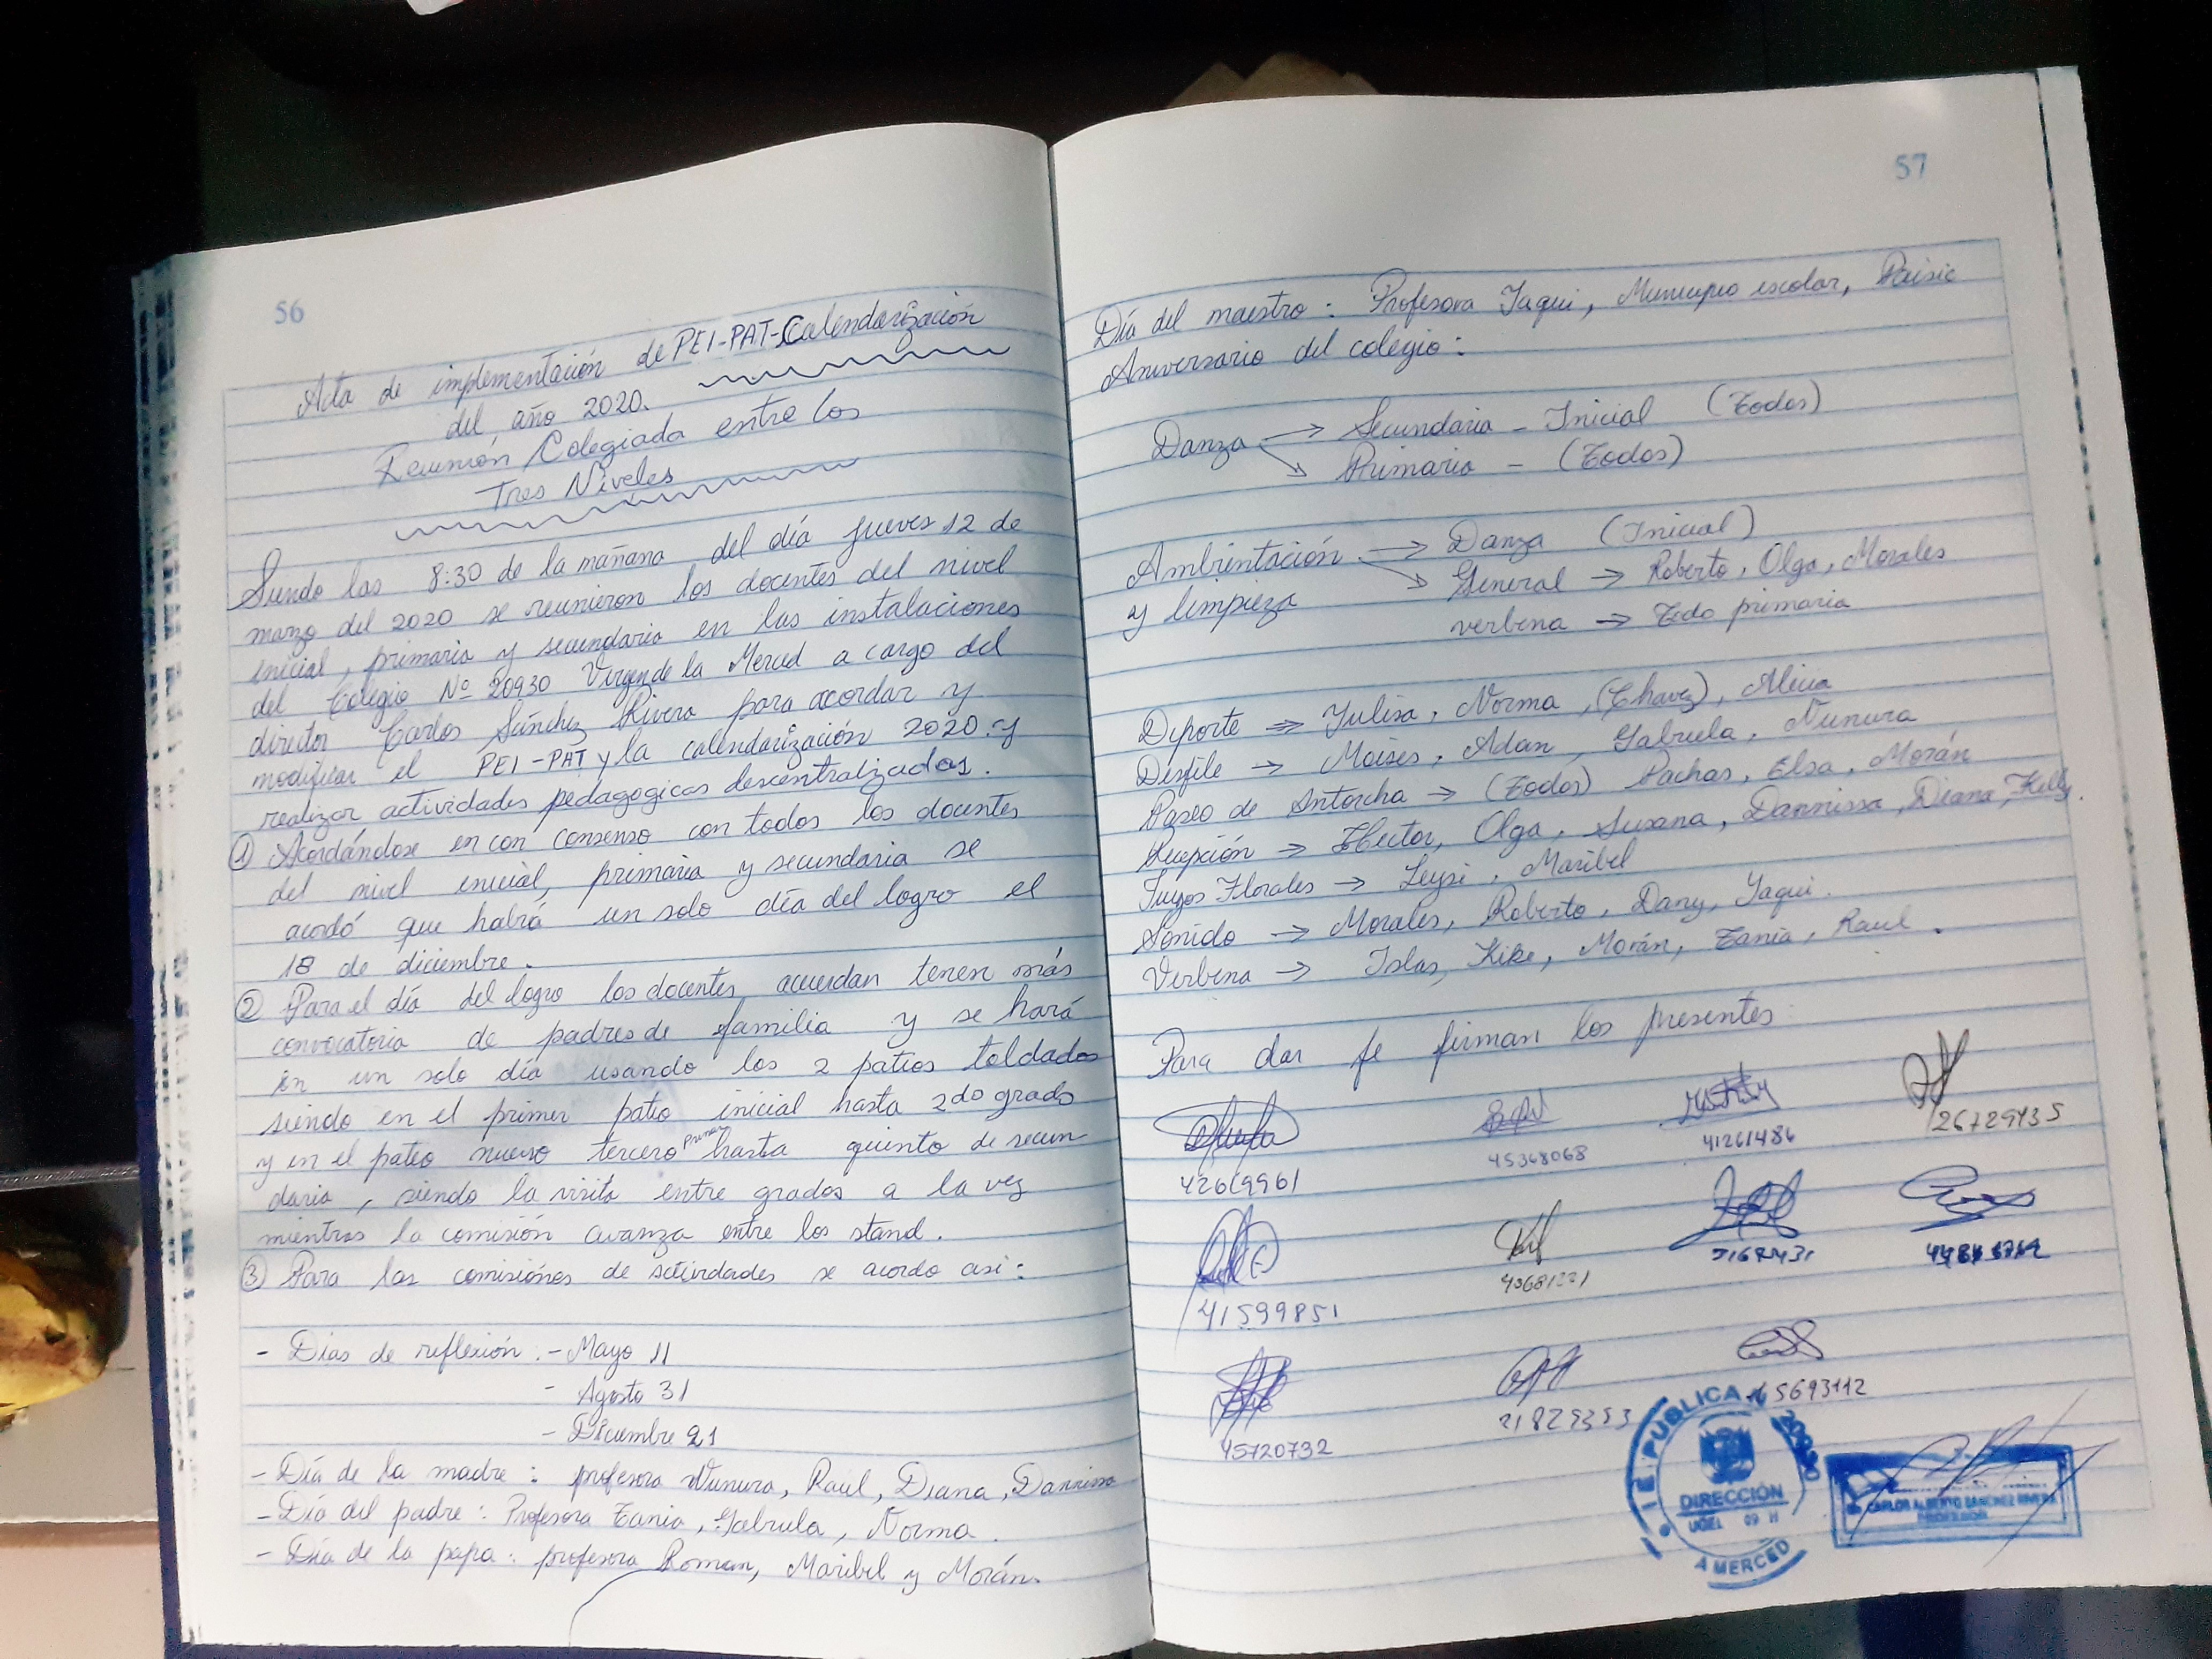 56
Acta de implementación de PEI-PAT-Calendarización
del año 2020.
Reunión Colegiada entre los
Tres Niveles
Siendo las 8:30 de la mañana del día jueves 12 de
marzo del 2020 se reunieron los docentes del nivel
inicial, primaria y secundaria en las instalaciones
del Colegio Nº 20930 Virgen de la Merced a cargo del
director Carlos Sánchez Rivera para acordar y
modificar el PEI-PAT y la calendarización 2020 y
realizar actividades pedagogicas descentralizadas.
① Acordándose en con consenso con todos los docentes
del nivel inicial, primaria y secundaria se
acordó que habrá un solo día del logro el
18 de diciembre.
② Para el día del logro los docentes acuerdan tener más
convocatoria de padres de familia y se hará
en un solo día usando los 2 patios toldados
siendo en el primer patio inicial hasta 2do grado
y en el patio nuevo tercero prima hasta quinto de secun
daria, siendo la visita entre grados a la vez
mientras la comisión avanza entre los stand.
③ Para las comisiones de actividades se acordo asi:
- Días de reflexión.- Mayo 11
- Agosto 31
- Diciembre 21
- Día de la madre : profesora Nunura, Raul, Diana, Dannissa
- Día del padre : Profesora Tania, Gabriela, Norma.
- Día de la papa : profesora Roman, Maribel y Morán.
57
Día del maestro : Profesora Yaqui, Municipio escolar,
Aniversario del colegio :
Danza → Secundaria - Inicial (Todos)
→ Primaria - (Todos)
Ambientación → Danza (Inicial)
y limpieza → General → Roberto, Olga, Morales
verbena → Todo primaria
Deporte → Yulisa, Norma, (Chavez), Alicia
Desfile → Moises, Adan, Gabriela, Nunura
Paseo de Antorcha → (Todos) Pachas, Elsa, Morán
Recepción → Hector, Olga, Susana, Dannissa, Diana, Kelly.
Juegos Florales → Leysi, Maribel
Sonido → Morales, Roberto, Dany, Yaqui.
Verbena → Islas, Kike, Morán, Tania, Raul.
Para dar fe firman los presentes:
45368068 41261486
41599851
45720732
I.E PUBLICA 20930
DIRECCIÓN
UGEL 09 H
A MERCED
CARLOS ALBERTO SANCHEZ RIVERA